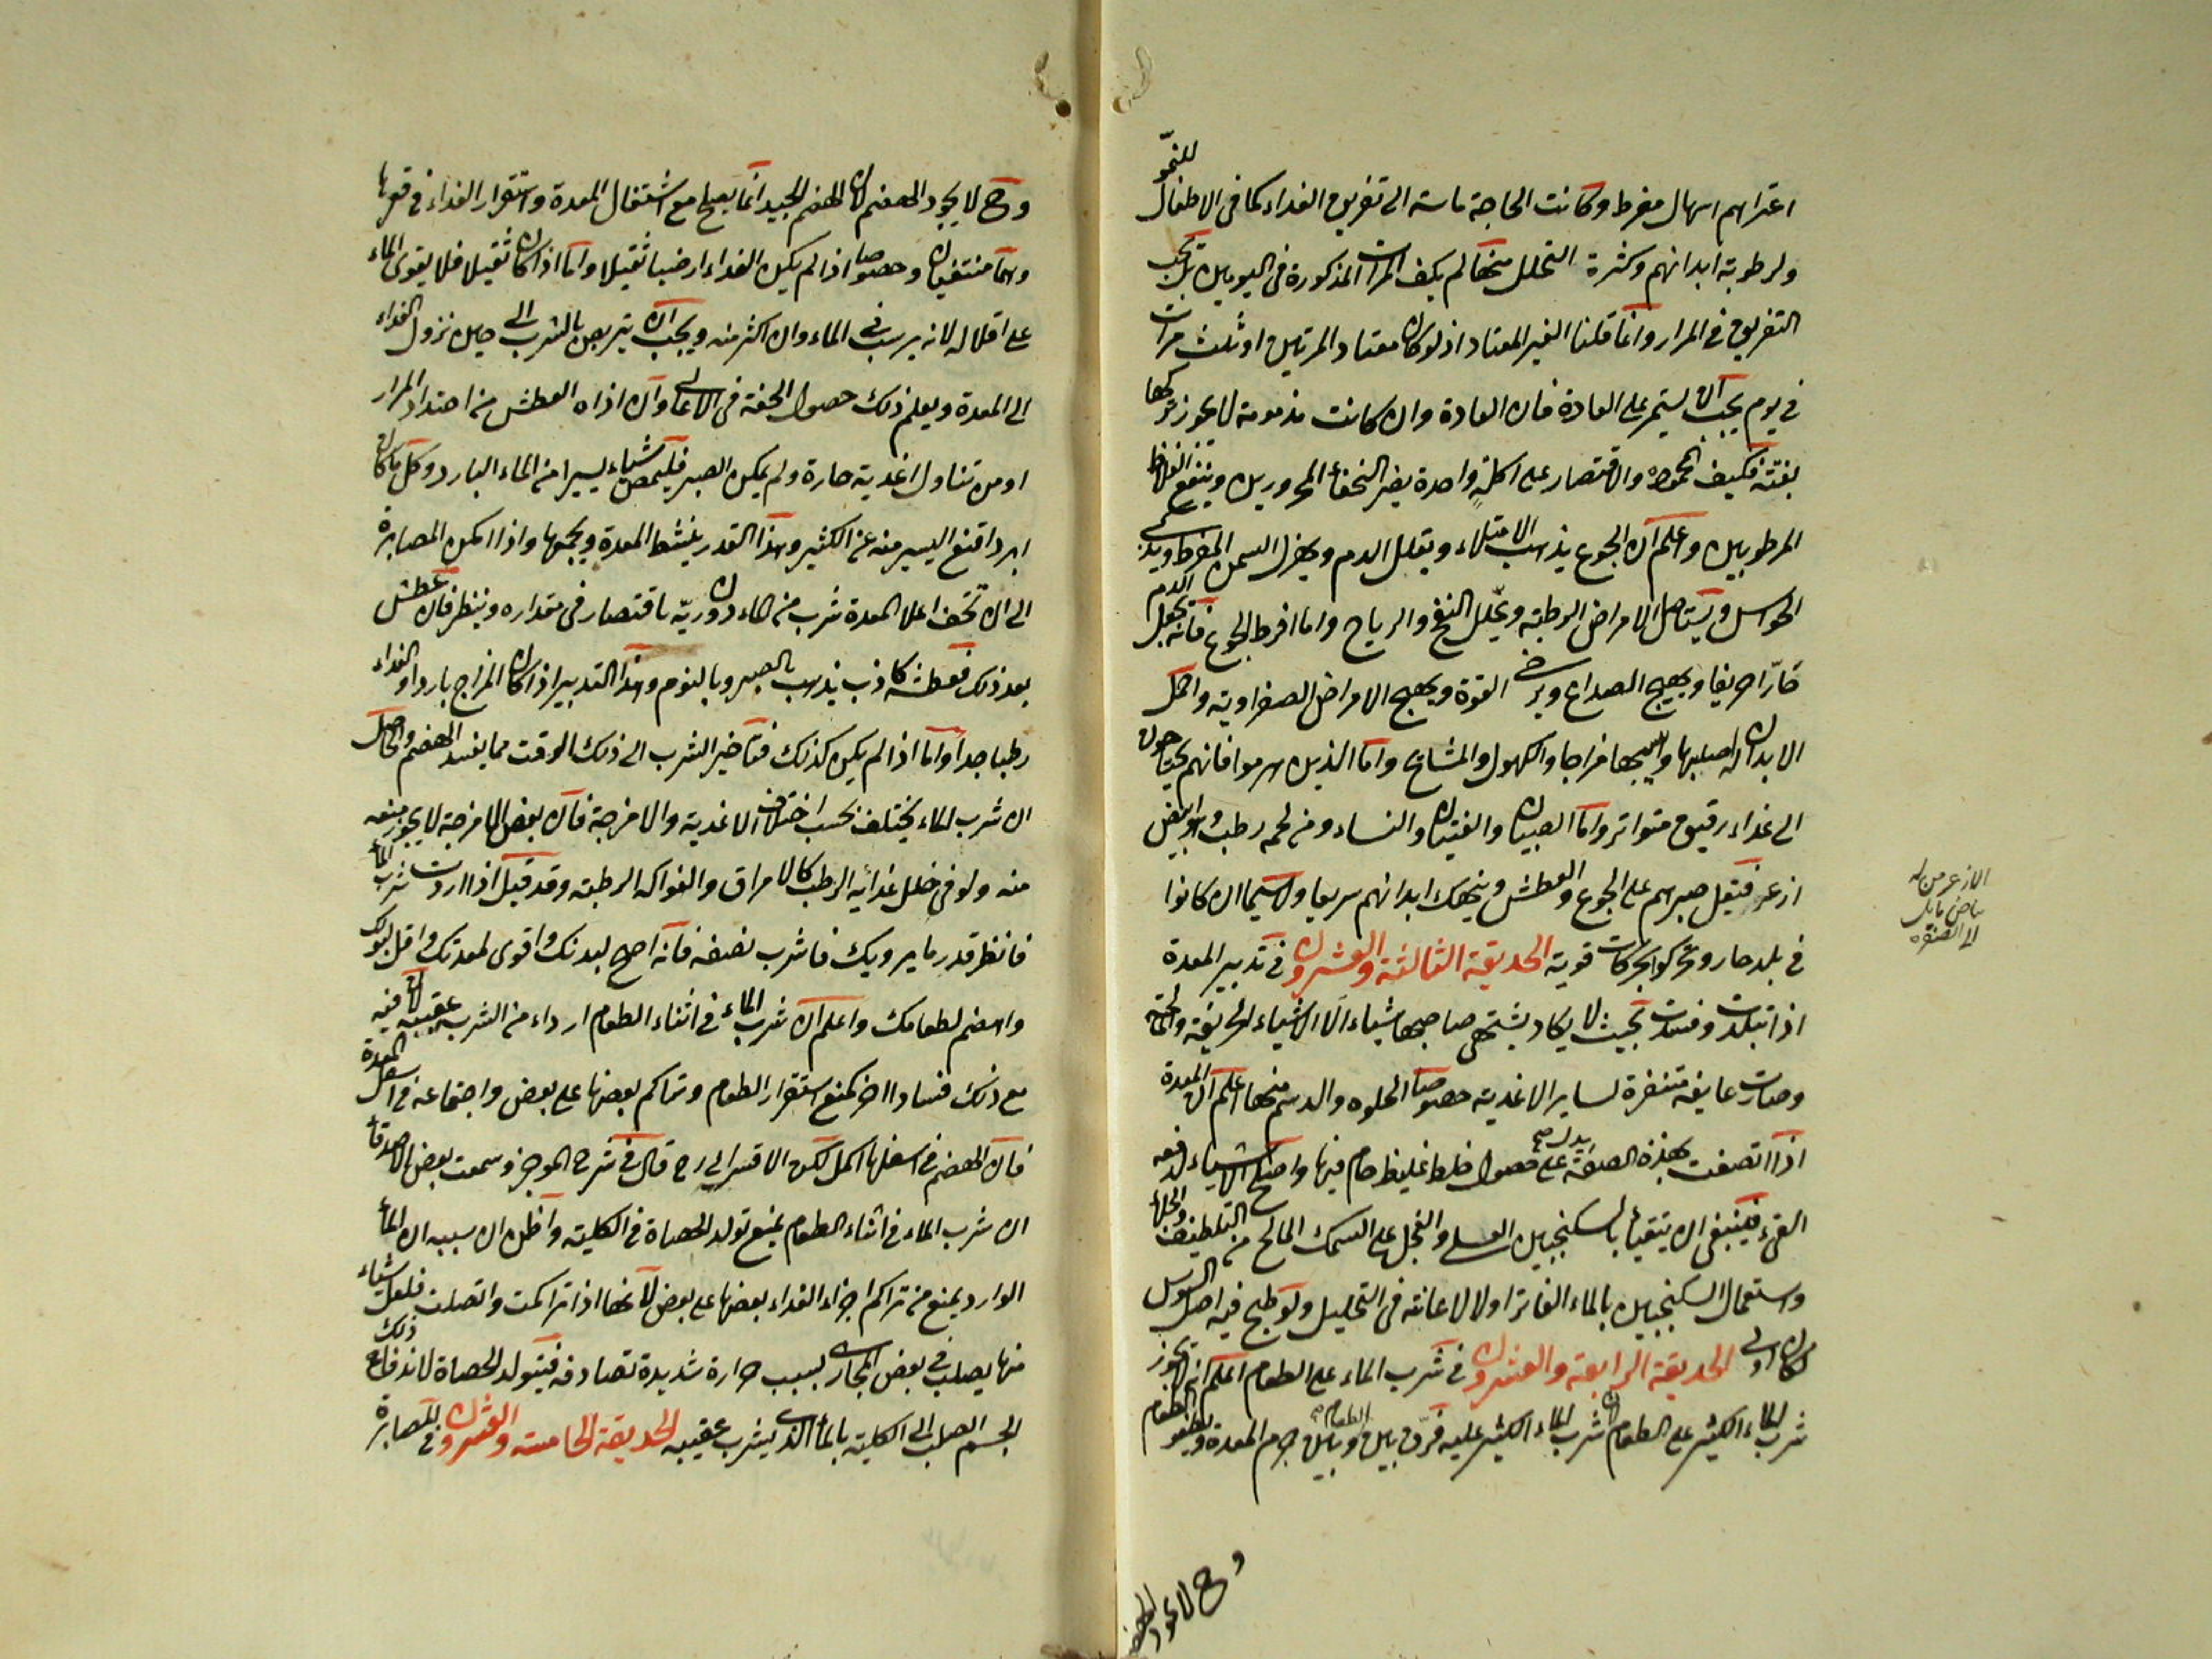 اعتراهم اسهال مفرط وكانت الحاجة ماسة الى تفريق الغداء كما فى الاطفال للنمو
ولرطوبة ابدانهم وكثرة التحلل منها لم يكف المرات المذكورة فى اليومين بل يجب
التفريق فى المرار وانما قلنا الغير المعتاد اذ لو كان معتاد المرتين او ثلث مرات
فى يوم يجب ان يستمر على العادة فان العادة وان كانت مذمومة لا يجوز تركها
بغتة فكيف المحمودة والاقتصار على اكلة واحدة يضر النحفاء المحرورين وينفع الغلاظ
المرطوبين واعلم ان الجوع يذهب الامتلاء ويقلل الدم ويهزل السمن المفرط ويذكى
الحواس ويستاصل الامراض الرطبة ويحلل النفخ والرياح واما افرط الجوع فانه يجعل الدم
حارّا حريفا ويهيج الصداع ويرخى القوة ويهيج الامراض الصفراوية واحمل
الابدان له اصلبها مزاجا والكهول والمشايخ واما الذين هرموا فانهم يحتاجون
الى غداء رقيق متواتر واما الصبيان والفتيان والنساء ومن لحمه رطب او ابيض
ازعر فيقل صبرهم على الجوع والعطش وينهك ابدانهم سريعا ولا سيما ان كانوا
فى بلد حار وتحركوا بحركات قوية الحديقة الثالثة والعشرون فى تدبير المعدة
اذا تبلدت وفسدت بحيث لا يكاد يشتهى صاحبها شياء الا الاشياء الحريفة والحامضة
وصارت عايفة متنفرة لساير الاغدية خصوصا الحلوه والدسم منها اعلم ان المعدة
اذا اتصفت بهذه الصفة يدل على حصول خلط غليظ خام فيها واصلح الاشياء لدفعه
القىء فينبغى ان يتقيأ بالسكنجبين العسلى والفجل على السمك المالح من التلطيف والجلاء
واستعمال السكنجبين بالماء الفاتر اولا لاعانته فى التحليل ولو طبخ فيه اصل السوس
لكان اولى الحديقة الرابعة والعشرون فى شرب الماء على الطعام اعلم انه لا يجوز
شرب الماء الكثير على الطعام لان شرب الماء الكثير عليه فرّق بين الطعام وبين جرم المعدة ويطفو الطعام
وح لا يجود الهضم
الازعر من له
بياض مايل
الى الصفرة
وح لا يجود الهضم لان الهضم الجيد انما يصلح مع اشتغال المعدة واستقرار الغداء فى قعرها
وهما منتفيان وخصوصا اذا لم يكن الغداء ارضيا ثقيلا واما اذا كان ثقيلا فلا يقوى الماء
على اقلاله لانه يرسب فى الماء وان اكثر منه ويجب ان يتربص بالشرب الى حين نزول الغداء
الى المعدة ويعلم ذلك حصول الخفة فى الاعالى وان اذاه العطش من احتداد المرار
او من تناول اغدية حارة ولم يمكن الصبر فليمص شياء يسيرا من الماء البارد وكل ما كان
ابرد اقنع اليسير منه عن الكثير وهذا القدر ينشط المعدة ويجمعها واذا امكن المصابرة
الى ان تخف اعلا المعدة شرب من الماء دون ريّه باقتصار فى مقداره وينظر فان عطش
بعد ذلك فعطشه كاذب يذهب بالصبر وبالنوم وهذا التدبير اذا كان المزاج باردا والغداء
رطبا جدا واما اذا لم يكن كذلك فتاخير الشرب الى ذلك الوقت مما يفسد الهضم والحاصل
ان شرب الماء يختلف بحسب اختلاف الاغدية والامزجة فان بعض الامزجة لا يجوز منعه
منه ولو فى خلل غدائه الرطب كالامراق والفواكه الرطبة وقد قيل اذا اردت شرب الماء
فانظر قدر ما يرويك فاشرب نصفه فانه اصلح لبدنك واقوى لمعدتك واقل لبولك
واهضم لطعامك واعلم ان شرب الماء فى اثناء الطعام ارداء من الشرب عقيبه لان فيه
مع ذلك فسادا اخر كمنع استقرار الطعام وتراكم بعضها على بعض واجتماعه فى اسفل المعدة
فان الهضم فى اسفلها اكمل لكن الاقسرايى رح قال فى شرح الموجز وسمعت بعض الاصدقاء
ان شرب الماء فى اثناء الطعام يمنع تولد الحصاة فى الكلية واظن ان سببه ان الماء
الوارد يمنع من تراكم اجزاء الغداء بعضها على بعض لانها اذا تراكمت واتصلت فلعل شياء
منها يصلب فى بعض المجارى بسبب حرارة شديدة تصادفه فيتولد الحصاة لاندفاع ذلك
الجسم الصلب الى الكلية بالماء الذى يشرب عقيبه الحديقة الخامسة والعشرون فى المصابرة